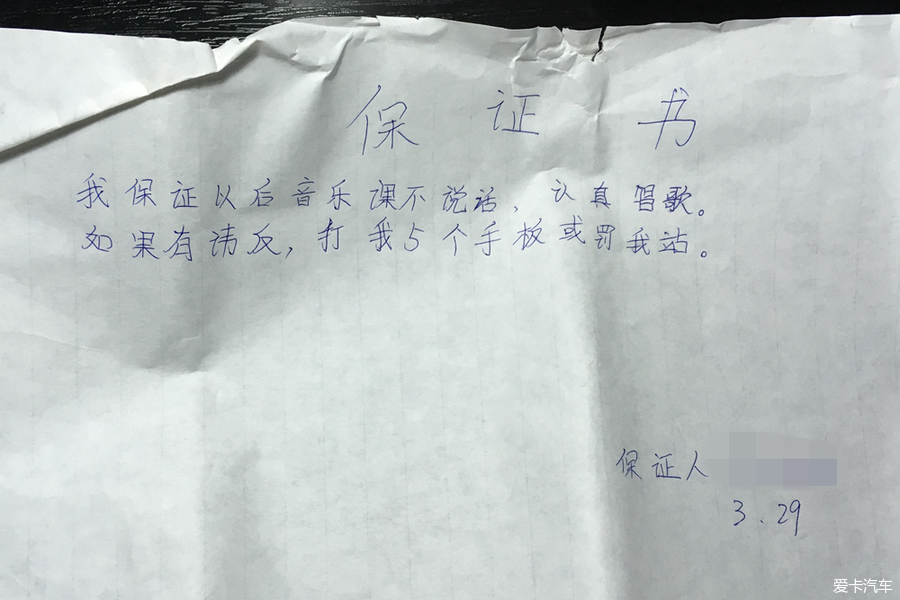 保证书
我保证以后音乐课不说话，认真唱歌。
如果有违反，打我5个手板或罚我站。
保证人
3.29
爱卡汽车